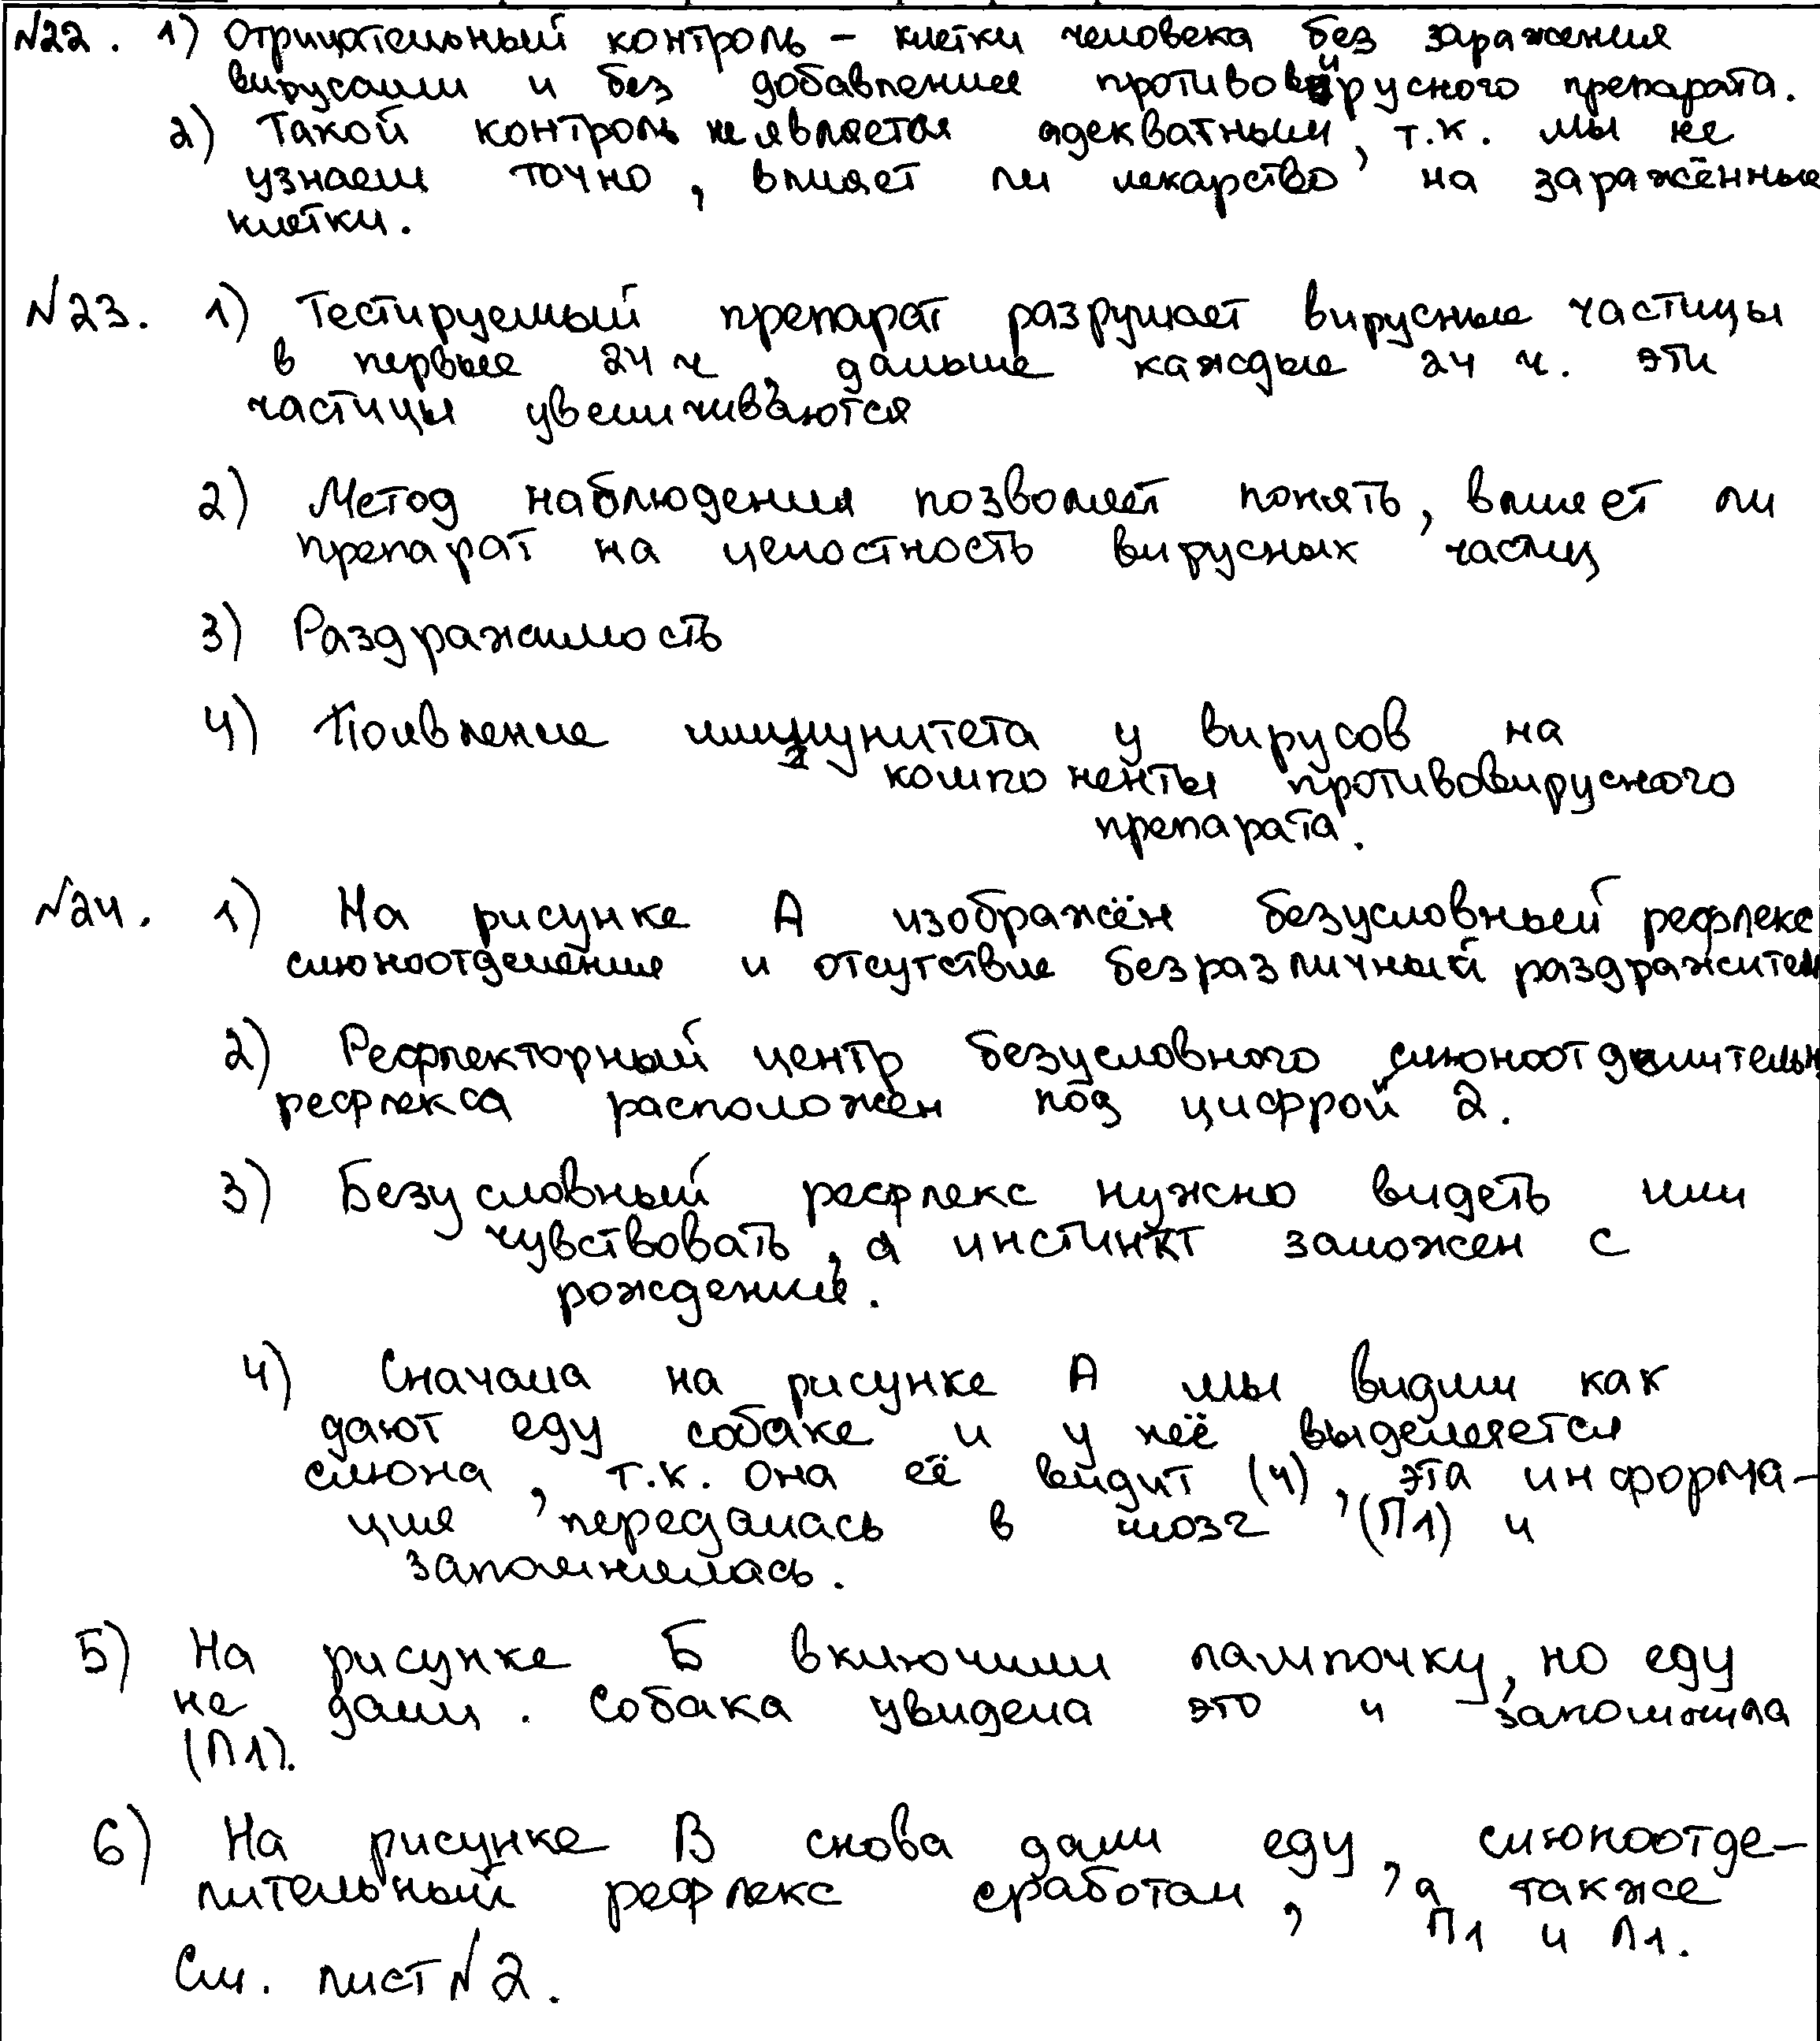 №22. 1) Отрицательный контроль – клетки человека без заражения
вирусами и без добавления противовирусного препарата.
2) Такой контроль не является адекватным, т.к. мы не
узнаем точно, влияет ли лекарство на заражённые
клетки.
№23. 1) Тестируемый препарат разрушает вирусные частицы
в первые 24 ч, дальше каждые 24 ч. эти
частицы увеличиваются
2) Метод наблюдения позволяет понять, влияет ли
препарат на целостность вирусных частиц
3) Раздражимость
4) Появление иммунитета у вирусов на
компоненты противовирусного
препарата.
№24. 1) На рисунке А изображён безусловный рефлекс
слюноотделения и отсутствие безразличный раздражител
2) Рефлекторный центр безусловного слюноотделительн
рефлекса расположен под цифрой 2.
3) Безусловный рефлекс нужно видеть или
чувствовать, а инстинкт заложен с
рождения.
4) Сначала на рисунке А мы видим как
дают еду собаке и у неё выделяется
слюна, т.к. она её видит (4), эта информа-
ция передалась в мозг (П1) и
запомнилась.
5) На рисунке Б включили лампочку, но еду
не дали. Собака увидела это и запомнила
(Л1).
6) На рисунке В снова дали еду, слюноотде-
лительный рефлекс сработал, а также
П1 и Л1.
См. лист №2.